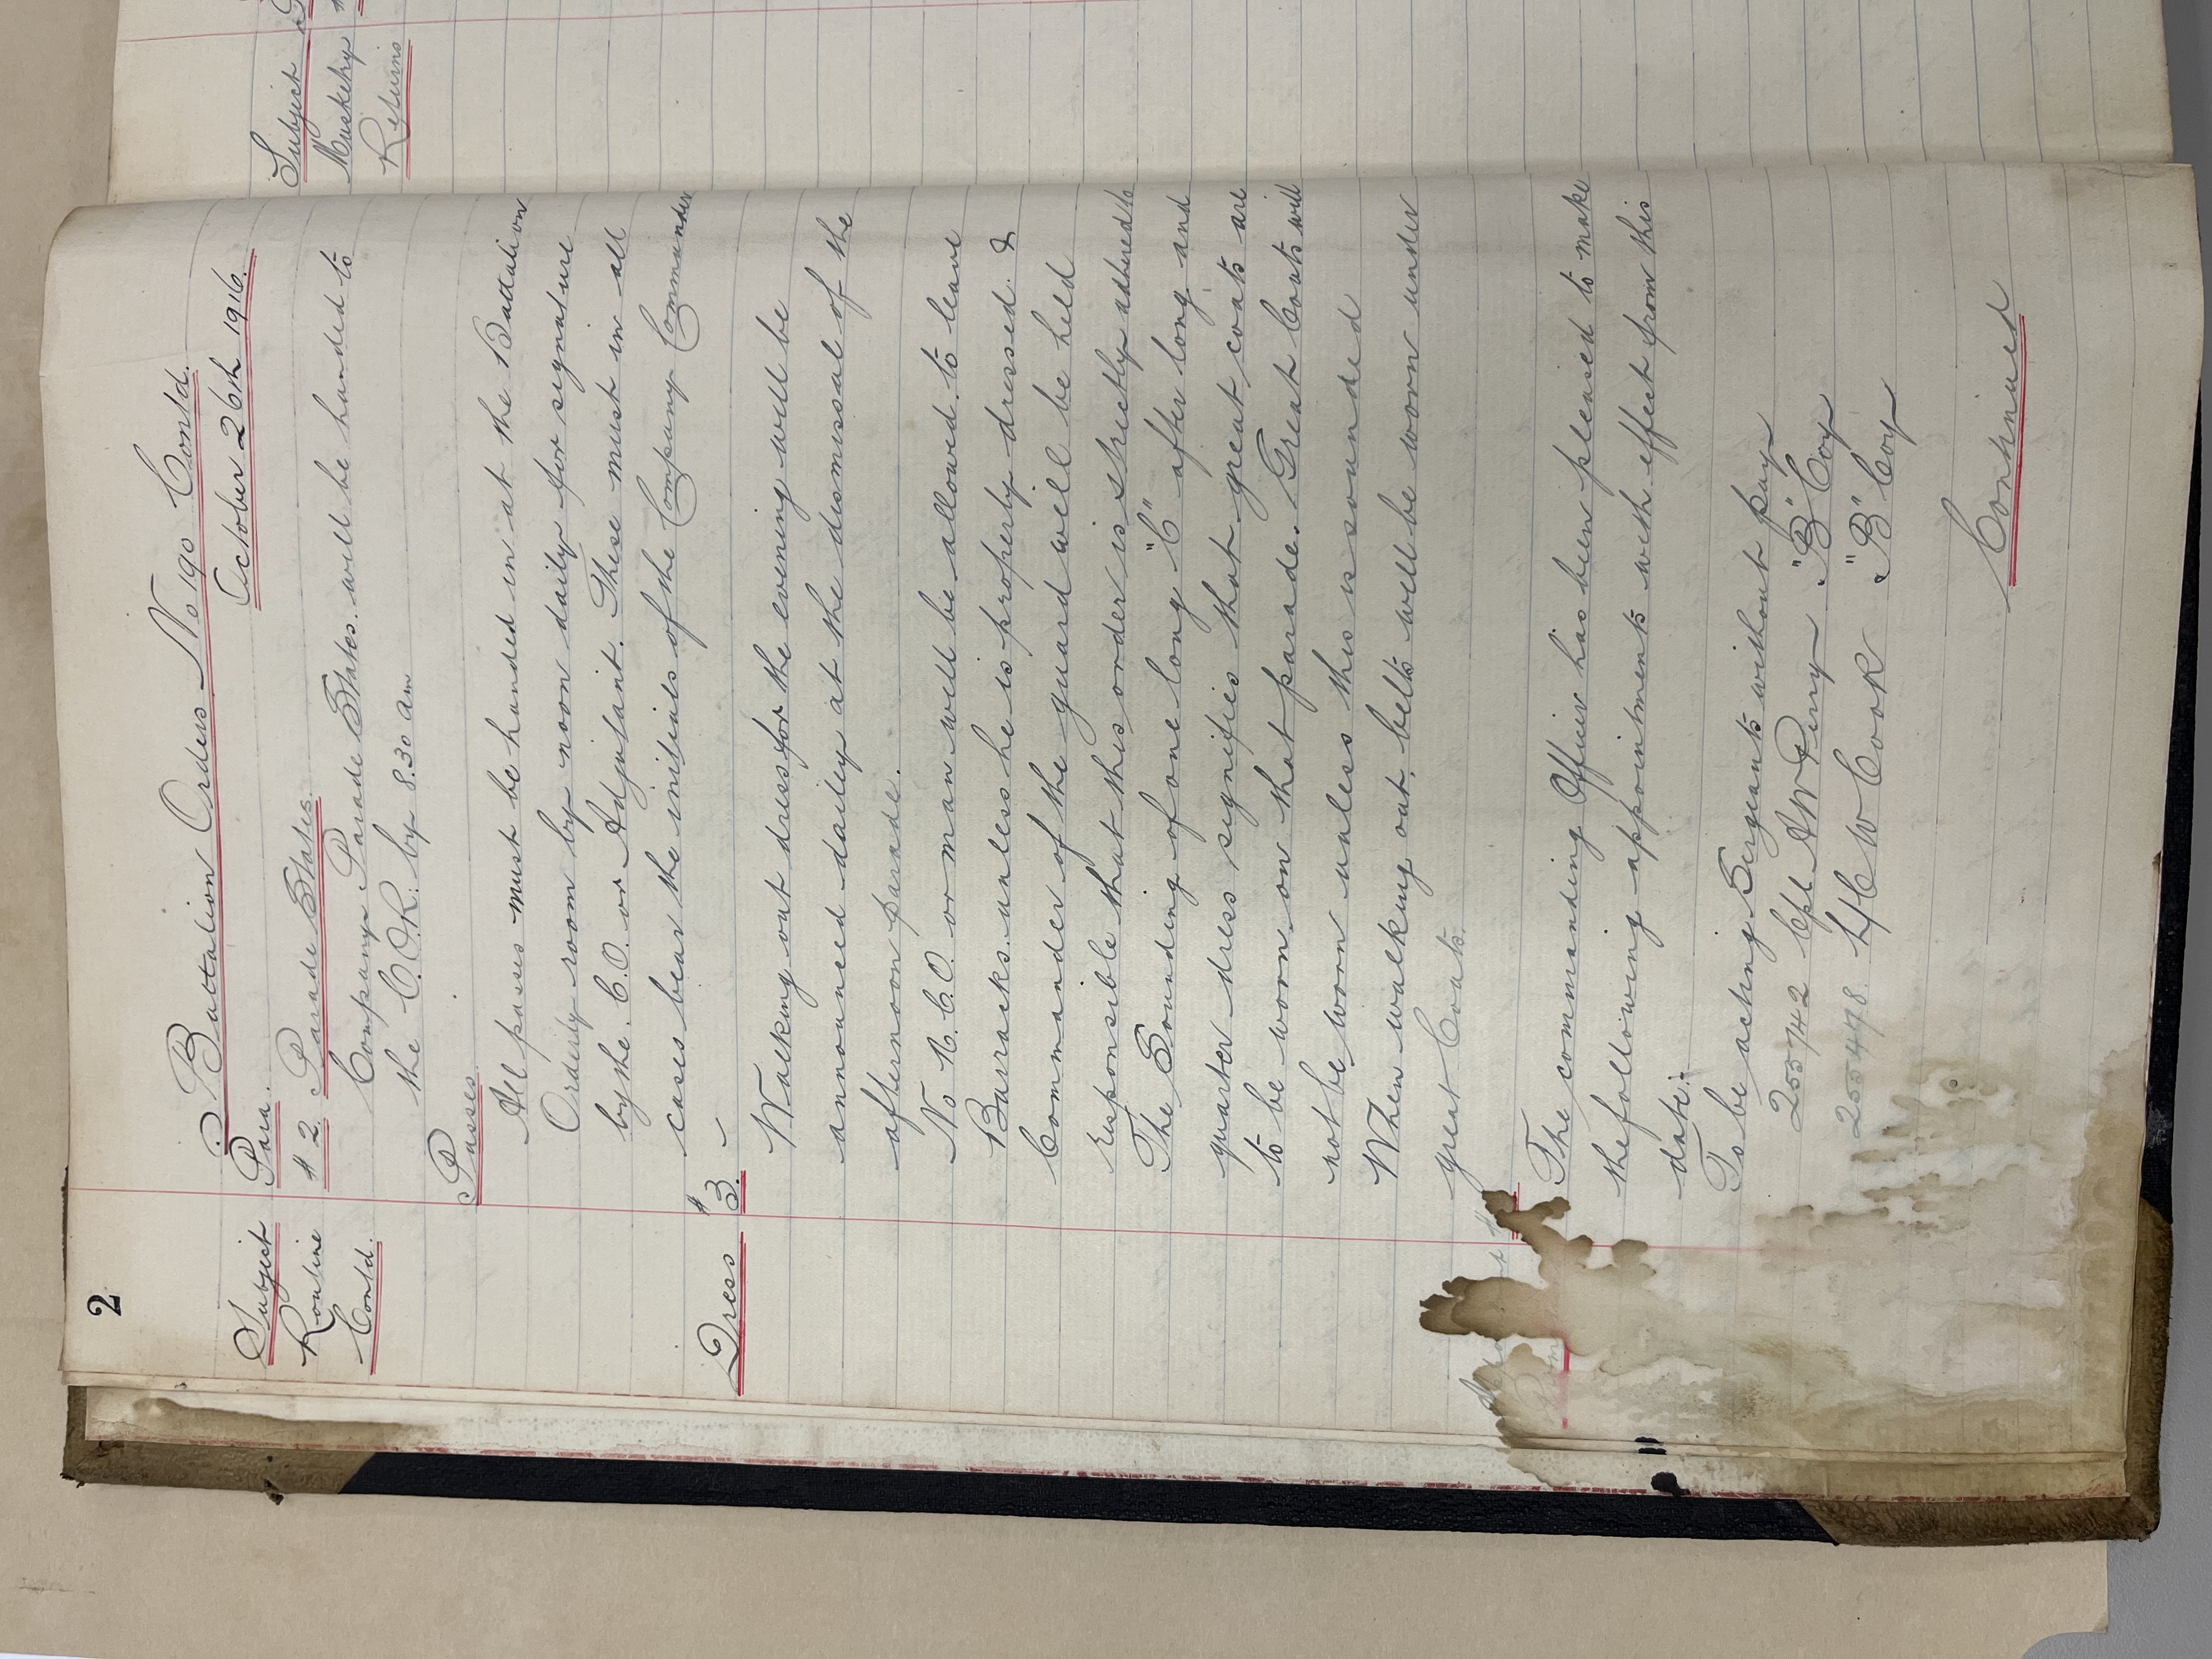 2
Battalion Orders No 190 Contd.
October 26th 1916.
Subject Para.
Routine # 2. Parade States.
Contd. Company Parade States. will be handed to
the C.O.R. by 8.30 am
Passes.
All passes must be handed in at the Battalion
Orderly room by noon daily for signature
by the C.O. or Adjutant. These must in all
cases bear the initials of the Company Commander
Dress # 3.
Walking out dress for the evening will be
announced daily at the dismissal of the
afternoon parade.
No N.C.O. or man will be allowed to leave
Barracks. unless he is properly dressed. &
Commander of the guard will be held
responsible that this order is strictly adhered to
The Sounding of one long "C" after long and
quarter dress signifies that great coats are
to be worn on that parade. Great Coats will
not be worn unless this is sounded
When walking out, belts will be worn under
great Coats.
The commanding Officer has been pleased to make
the following appointments with effect from this
date:-
To be acting Sergeants without pay
255742 Cpl A W Perry "B" Coy
255478 L/C W Cook "B" Coy
Continued
Subject
Musketry
Returns